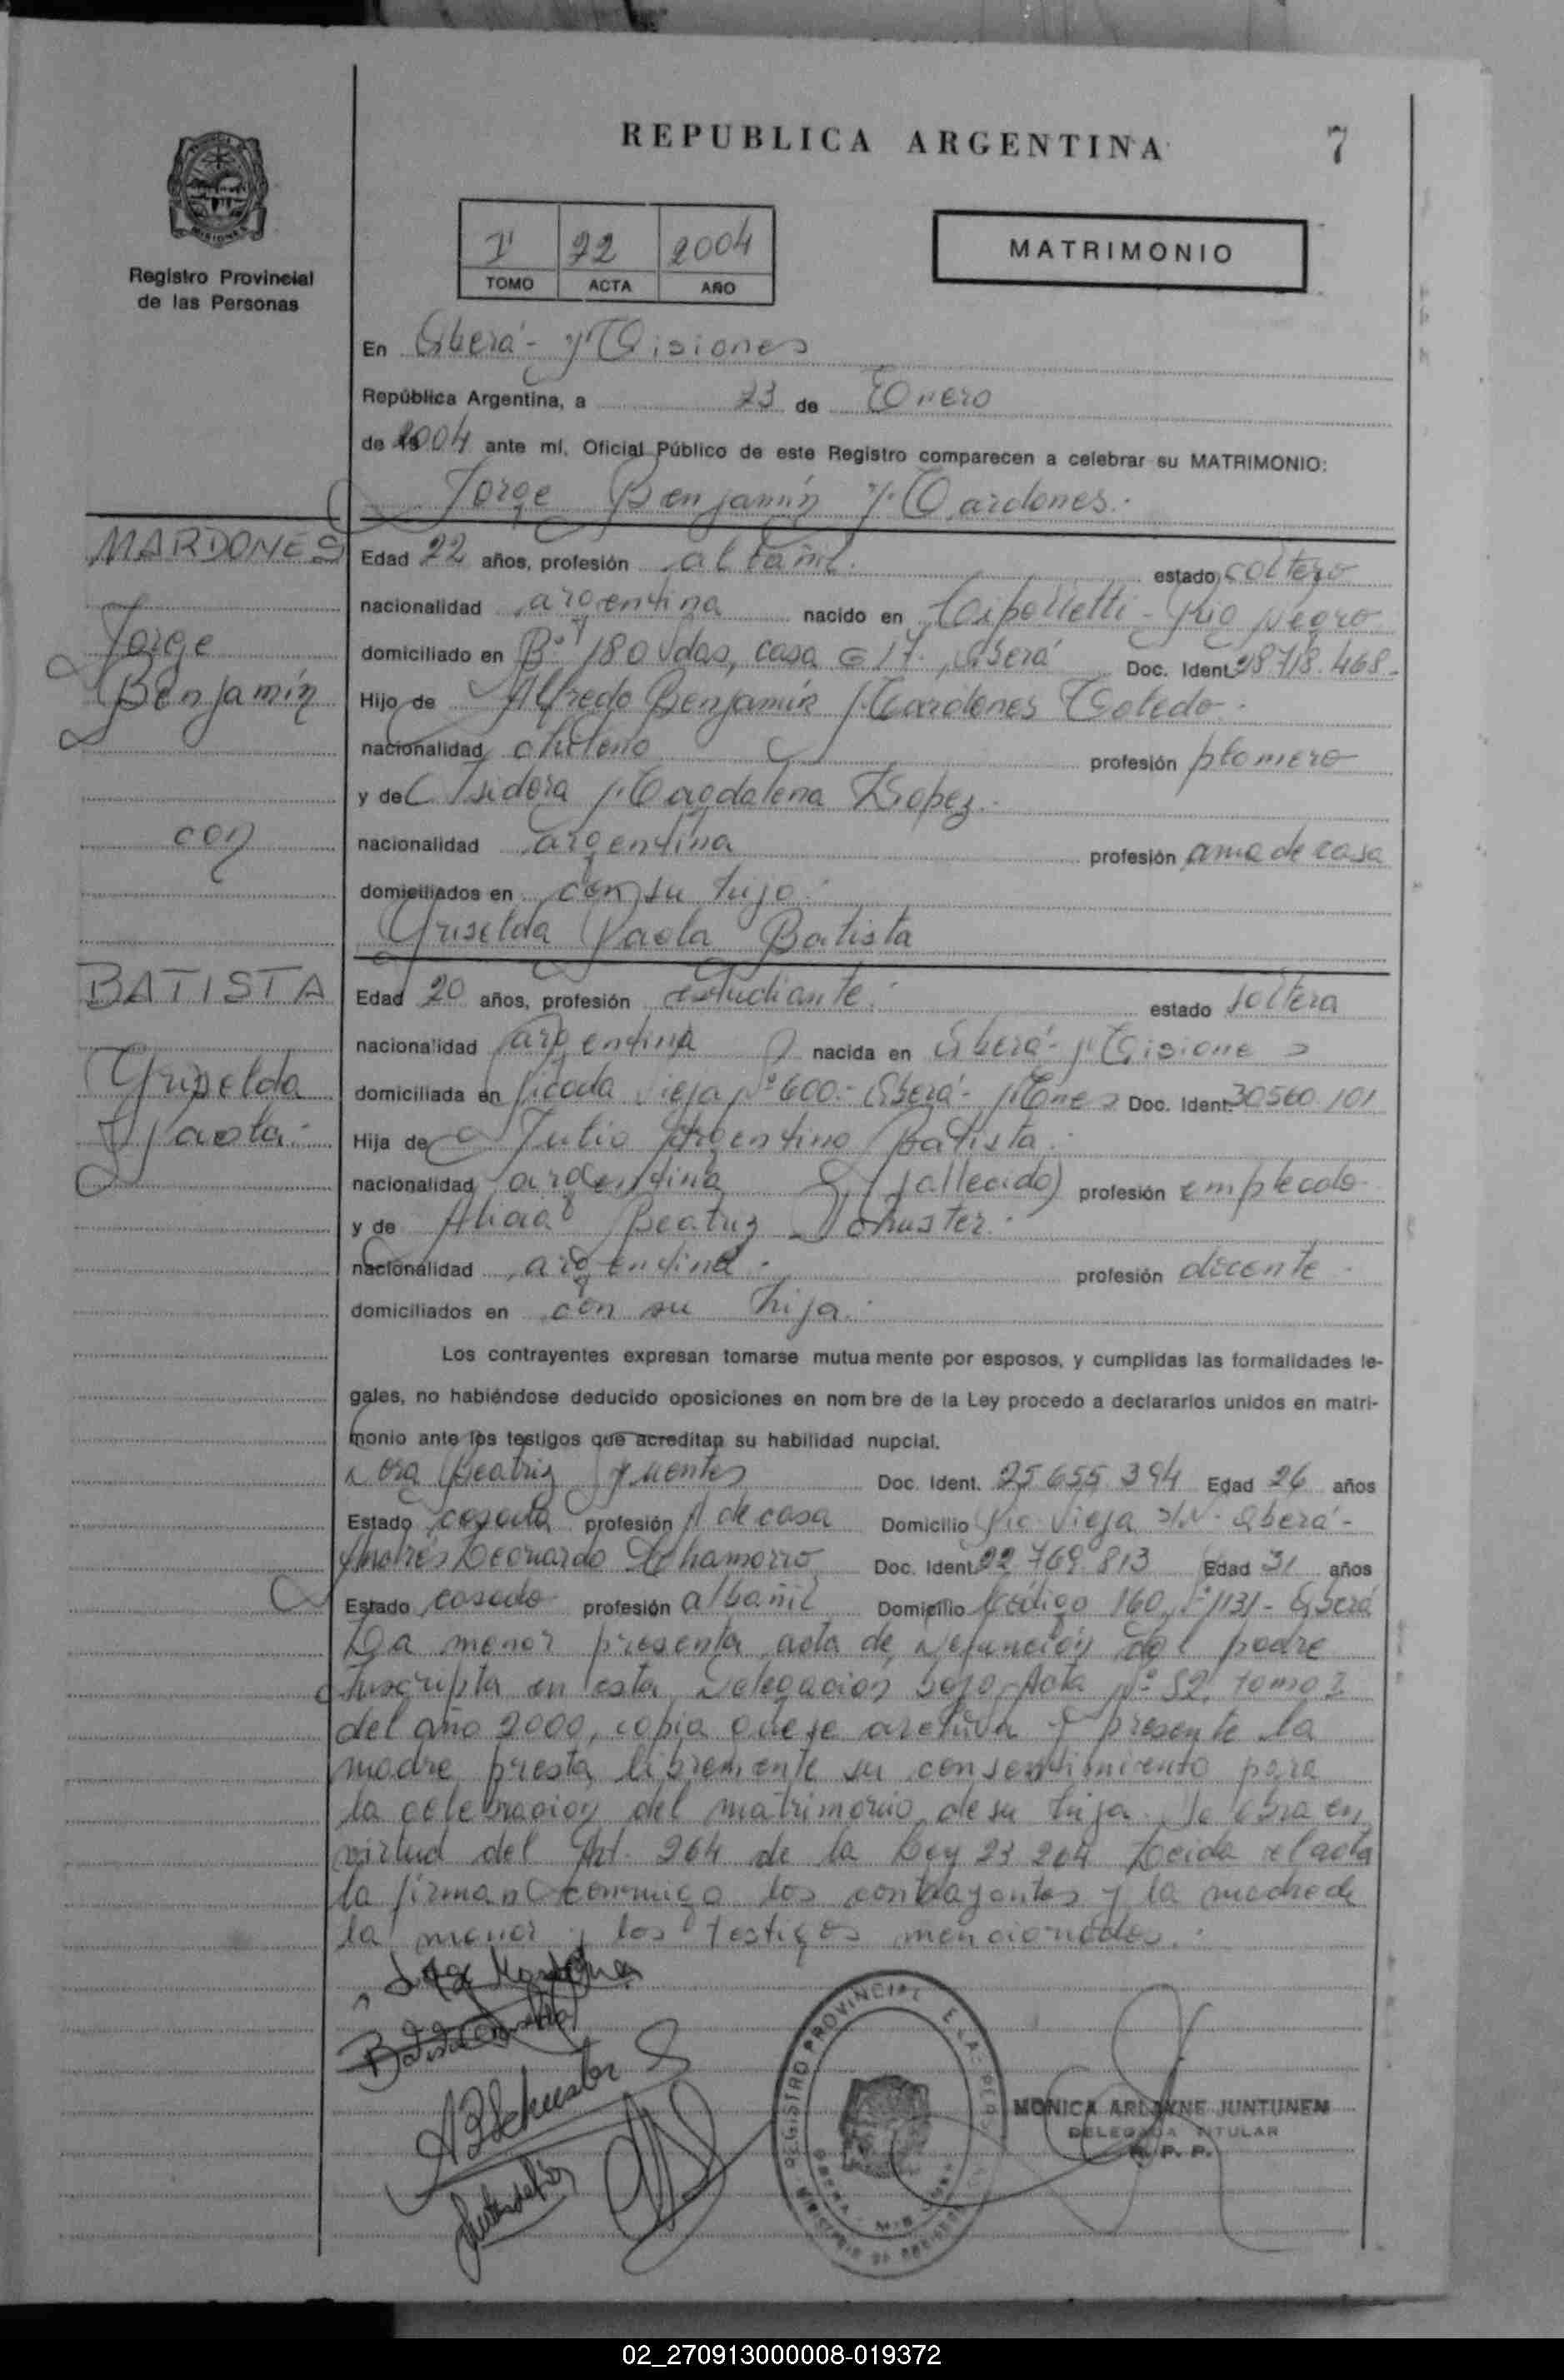 REPUBLICA ARGENTINA
7
MISIONES
Registro Provincial
de las Personas
I 22 2004
TOMO ACTA AÑO
MATRIMONIO
En Oberá - Misiones
República Argentina, a 23 de Enero
de 2004 ante mí, Oficial Público de este Registro comparecen a celebrar su MATRIMONIO:
Jorge Benjamín Mardones.
MARDONES
Jorge
Benjamín
con
BATISTA
Griselda
Paola.
Edad 22 años, profesión albañil. estado soltero
nacionalidad argentina nacido en Cipolletti - Río Negro
domiciliado en B° 180 Vdas, casa G 17, Oberá Doc. Ident. 28718.468.
Hijo de Alfredo Benjamín Mardones Toledo.
nacionalidad chileno profesión plomero
y de Isidora Magdalena Lopez.
nacionalidad argentina profesión ama de casa
domiciliados en con su hijo.
Griselda Paola Batista
Edad 20 años, profesión estudiante. estado soltera
nacionalidad argentina nacida en Oberá - Misiones
domiciliada en Picada Vieja N° 600 - Oberá - Mnes Doc. Ident. 30560.101
Hija de Julio Argentino Batista.
nacionalidad argentina (fallecido) profesión empleado
y de Alicia Beatriz Schuster.
nacionalidad argentina. profesión docente.
domiciliados en con su hija.
Los contrayentes expresan tomarse mutua mente por esposos, y cumplidas las formalidades le-
gales, no habiéndose deducido oposiciones en nom bre de la Ley procedo a declararlos unidos en matri-
monio ante los testigos que acreditan su habilidad nupcial.
Beatriz Doc. Ident. 25.655.394 Edad 26 años
Estado casada profesión A. de casa Domicilio Pic. Vieja s/N - Oberá -
Andrés Leonardo Chamorro Doc. Ident. 22.769.813 Edad 31 años
Estado casado profesión albañil Domicilio Código 160, N° 1131 - Oberá
La menor presenta acta de defunción del padre
inscripta en esta Delegación bajo Acta N° 52, tomo I
del año 2000, copia que se archiva y presente la
madre presta libremente su consentimiento para
la celebración del matrimonio de su hija. Se obra en
virtud del Art. 264 de la Ley 23.264 Leída el acta
la firman conmigo los contrayentes y la madre de
la menor y los testigos mencionados.
Jorge Mardones
Batista Griselda
ABSchuster
REGISTRO PROVINCIAL DE LAS PERSONAS
MONICA ARLAYNE JUNTUNEN
DELEGADA TITULAR
R. P. P.
02_270913000008-019372